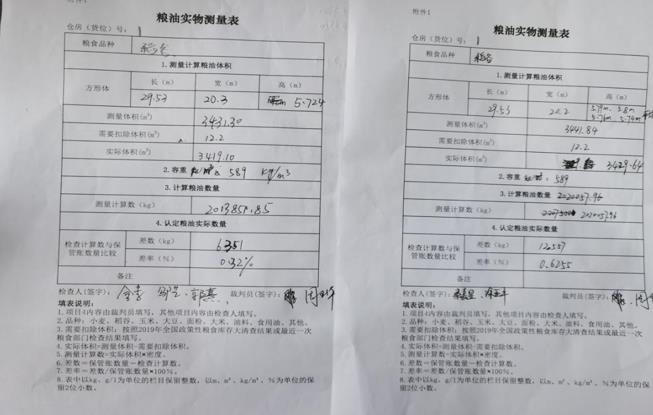 附件1
粮油实物测量表
仓房（货位）号： 1
粮食品种 稻谷
1.测量计算粮油体积
方形体 长（m） 宽（m） 高（m）
29.53 20.3 5.724
测量体积(m³) 3431.30
需要扣除体积(m³) 12.2
实际体积(m³) 3419.10
2.容重 589 kg/m3
3.计算粮油数量
测量计算数（kg） 2013850.85
4.认定粮油实际数量
检查计算数与保管账数量比较 差数（kg） 6351
差率（%） 0.32%
备注
检查人(签字)： 裁判员(签字)：
填表说明：
1.项目4内容由裁判员填写，其他项目内容由检查人填写。
2.品种：小麦、稻谷、玉米、大豆、面粉、大米、油料、食用油、其他。
3.需要扣除体积：按照2019年全国政策性粮食库存大清查结果或最近一
次粮食部门检查结果填写。
4.实际体积=测量体积-需要扣除体积。
5.测量计算数=实际体积*密度。
6.差数=保管账数量-检查计算数。
7.差率=差数/保管账数量*100%。
8.表中以kg、g/l为单位的栏目保留整数，以m、m³、kg/m³、%为单位的保
留2位小数。
附件1
粮油实物测量表
仓房（货位）号： 1
粮食品种 稻谷
1.测量计算粮油体积
方形体 长（m） 宽（m） 高（m）
29.53 20.2 5.79m 5.8m
5.76m 5.74m
测量体积(m³) 3441.84
需要扣除体积(m³) 12.2
实际体积(m³) 3429.64
2.容重 589
3.计算粮油数量 2020057.96
测量计算数（kg） 2020057.96
4.认定粮油实际数量
检查计算数与保管账数量比较 差数（kg） 12557
差率（%） 0.6255
备注
检查人(签字)： 裁判员(签字)：
填表说明：
1.项目4内容由裁判员填写，其他项目内容由检查人填写。
2.品种：小麦、稻谷、玉米、大豆、面粉、大米、油料、食用油、其他。
3.需要扣除体积：按照2019年全国政策性粮食库存大清查结果或最近一次
粮食部门检查结果填写。
4.实际体积=测量体积-需要扣除体积。
5.测量计算数=实际体积*密度。
6.差数=保管账数量-检查计算数。
7.差率=差数/保管账数量*100%。
8.表中以kg、g/l为单位的栏目保留整数，以m、m³、kg/m³、%为单位的保
留2位小数。